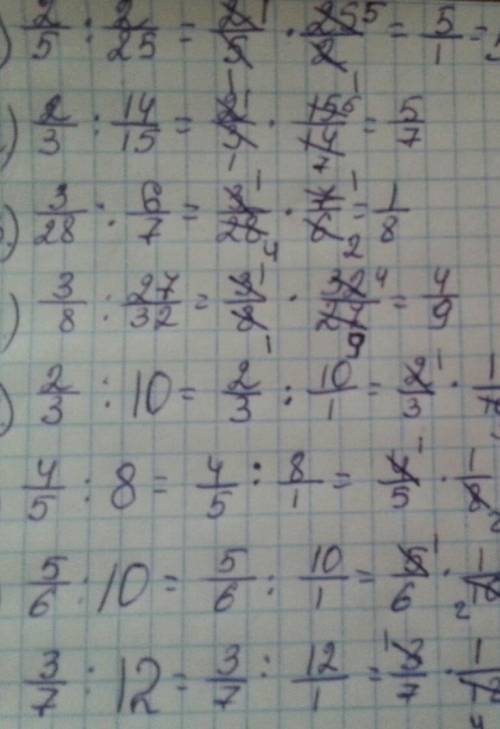 ) 2/5 : 2/25 = 2 1/5 · 25 5/2 1 = 5/1 =
) 2/3 : 14/15 = 2 1/3 1 · 15 5/14 7 = 5/7
) 3/28 : 6/7 = 3 1/28 4 · 7 1/6 2 = 1/8
) 3/8 : 27/32 = 3 1/8 1 · 32 4/27 9 = 4/9
) 2/3 : 10 = 2/3 : 10/1 = 2 1/3 · 1/10
4/5 : 8 = 4/5 : 8/1 = 4 1/5 · 1/8 2
5/6 : 10 = 5/6 : 10/1 = 5 1/6 · 1/10 2
3/7 : 12 = 3/7 : 12/1 = 3 1/7 · 1/12 4